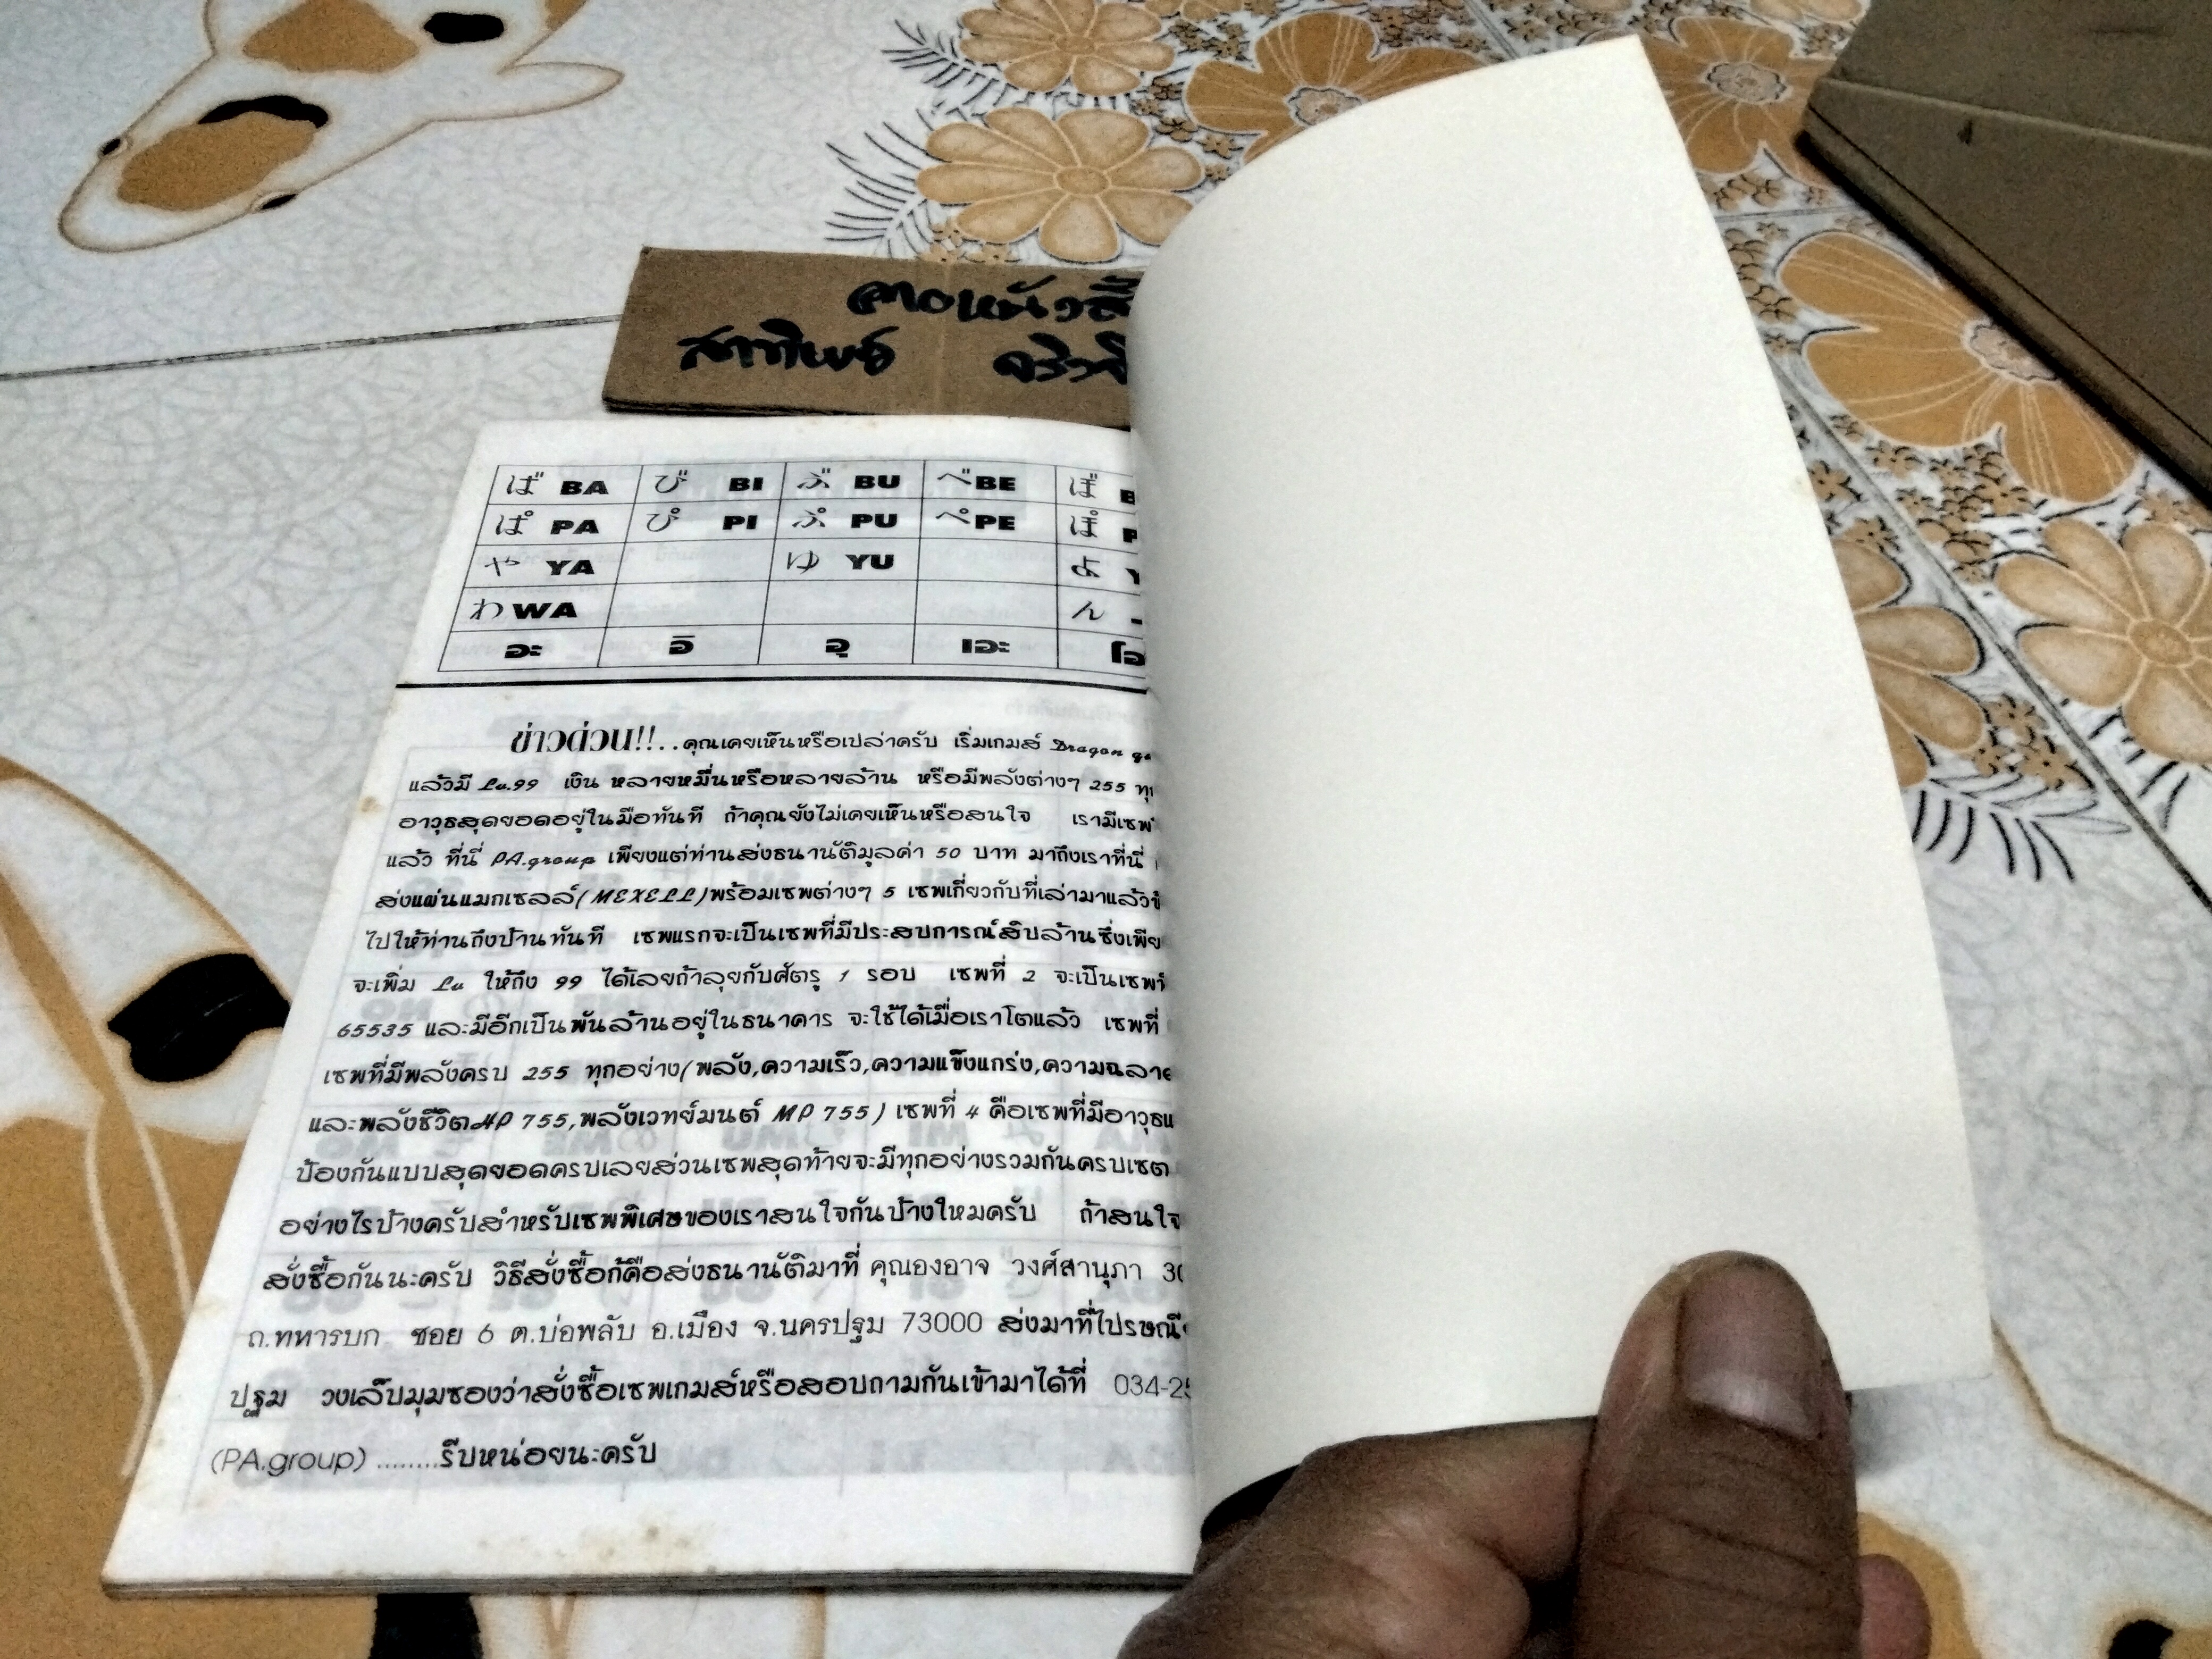 สาทิพย์
ば BA び BI ぶ BU べ BE ぼ
ぱ PA ぴ PI ぷ PU ぺ PE ぽ
や YA ゆ YU よ
わ WA ん
อะ อิ อุ เอะ
ข่าวด่วน!!..คุณเคยเห็นหรือเปล่าครับ เริ่มเกมส์ Dragon
แล้วมี Lu.99 เงิน หลายหมื่นหรือหลายล้าน หรือมีพลังต่างๆ 255
อาวุธสุดยอดอยู่ในมือทันที ถ้าคุณยังไม่เคยเห็นหรือสนใจ เรามีเซพ
แล้ว ที่นี่ PA.group เพียงแต่ท่านส่งธนานัติมูลค่า 50 บาท มาถึงเราที่นี่
ส่งแผ่นแมกเซลล์(MEXELL)พร้อมเซพต่างๆ 5 เซพเกี่ยวกับที่เล่ามาแล้ว
ไปให้ท่านถึงบ้านทันที เซพแรกจะเป็นเซพที่มีประสบการณ์สิบล้านซึ่ง
จะเพิ่ม Lu ให้ถึง 99 ได้เลยถ้าลุยกับศัตรู 1 รอบ เซพที่ 2 จะเป็นเซพ
65535 และมีอีกเป็นพันล้านอยู่ในธนาคาร จะใช้ได้เมื่อเราโตแล้ว เซพที่
เซพที่มีพลังครบ 255 ทุกอย่าง(พลัง,ความเร็ว,ความแข็งแกร่ง,
และพลังชีวิตHP 755,พลังเวทย์มนต์ MP 755) เซพที่ 4 คือเซพที่มี
ป้องกันแบบสุดยอดครบเลยส่วนเซพสุดท้ายจะมีทุกอย่างรวมกันครบเซต
อย่างไรบ้างครับสำหรับเซพพิเศษของเราสนใจกันบ้างใหมครับ ถ้าสนใจ
สั่งซื้อกันนะครับ วิธีสั่งซื้อก้คือส่งธนานัติมาที่ คุณองอาจ วงศ์สานุภา
ถ.ทหารบก ซอย 6 ต.บ่อพลับ อ.เมือง จ.นครปฐม 73000 ส่งมาที่
ปฐม วงเล็บมุมซองว่าสั่งซื้อเซพเกมส์หรือสอบถามกันเข้ามาได้ที่
(PA.group) ........รีบหน่อยนะครับ